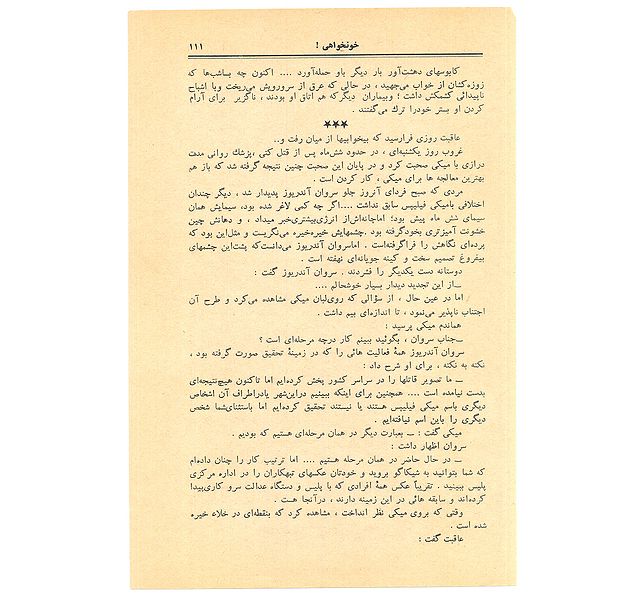 خونخواهی ! ۱۱۱
کابوسهای دهشت‌آور بار دیگر باو حمله‌آورد .... اکنون چه بساشب‌ها که
زوزه‌کشان از خواب می‌جهید ، در حالی که عرق از سرورویش می‌ریخت وبا اشباح
ناپیدائی کشمکش داشت ؛ وبیماران دیگرکه هم اتاق او بودند ، ناگزیر برای آرام
کردن او بستر خودرا ترك می‌گفتند .
★★★
عاقبت روزی فرارسید که بیخوابیها از میان رفت و..
غروب روز یکشنبه‌ای ، در حدود شش‌ماه پس از قتل کتی ،پزشك روانی مدت
درازی با میکی صحبت کرد و در پایان این صحبت چنین نتیجه گرفته شد که باز هم
بهترین معالجه ها برای میکی ، کار کردن است .
مردی که صبح فردای آنروز جلو سروان آندریوز پدیدار شد ، دیگر چندان
اختلافی بامیکی فیلیپس سابق نداشت ....اگر چه کمی لاغر شده بود، سیمایش همان
سیمای شش ماه پیش بود؛ اماچانه‌اش‌از انرژی‌بیشتری‌خبر میداد ، و دهانش چین
خشونت آمیزتری بخودگرفته بود .چشمهایش خیره‌خیره می‌نگریست و مثل‌این بود که
پرده‌ای نگاهش را فراگرفته‌است . اماسروان آندریوز می‌دانست‌که پشت‌این چشمهای
بیفروغ تصمیم سخت و کینه جویانه‌ای نهفته است .
دوستانه دست یکدیگر را فشردند . سروان آندریوز گفت :
ــ از این تجدید دیدار بسیار خوشحالم ....
اما در عین حال ، از سؤالی که روی‌لبان میکی مشاهده می‌کرد و طرح آن
اجتناب ناپذیر می‌نمود ، تا اندازه‌ای بیم داشت .
هماندم میکی پرسید :
ــ جناب سروان ، بگوئید ببینم کار درچه مرحله‌ای است ؟
سروان آندریوز همهٔ فعالیت هائی را که در زمینهٔ تحقیق صورت گرفته بود ،
نکته به نکته ، برای او شرح داد :
ــ ما تصویر قاتلها را در سراسر کشور پخش کرده‌ایم اما تاکنون هیچ‌نتیجه‌ای
بدست نیامده است .... همچنین برای اینکه ببینیم دراین‌شهر یادراطراف آن اشخاص
دیگری باسم میکی فیلیپس هستند یا نیستند تحقیق کرده‌ایم اما باستثنای‌شما شخص
دیگری را باین اسم نیافته‌ایم .
میکی گفت : ــ بعبارت دیگر در همان مرحله‌ای هستیم که بودیم .
سروان اظهار داشت :
ــ در حال حاضر در همان مرحله هستیم .... اما ترتیب کار را چنان داده‌ام
که شما بتوانید به شیکاگو بروید و خودتان عکسهای تبهکاران را در اداره مرکزی
پلیس ببینید . تقریباً عکس همهٔ افرادی که با پلیس و دستگاه عدالت سرو کاری‌پیدا
کرده‌اند و سابقه هائی در این زمینه دارند ، درآنجا هست .
وقتی که بروی میکی نظر انداخت ، مشاهده کرد که بنقطه‌ای در خلاء خیره
شده است .
عاقبت گفت :